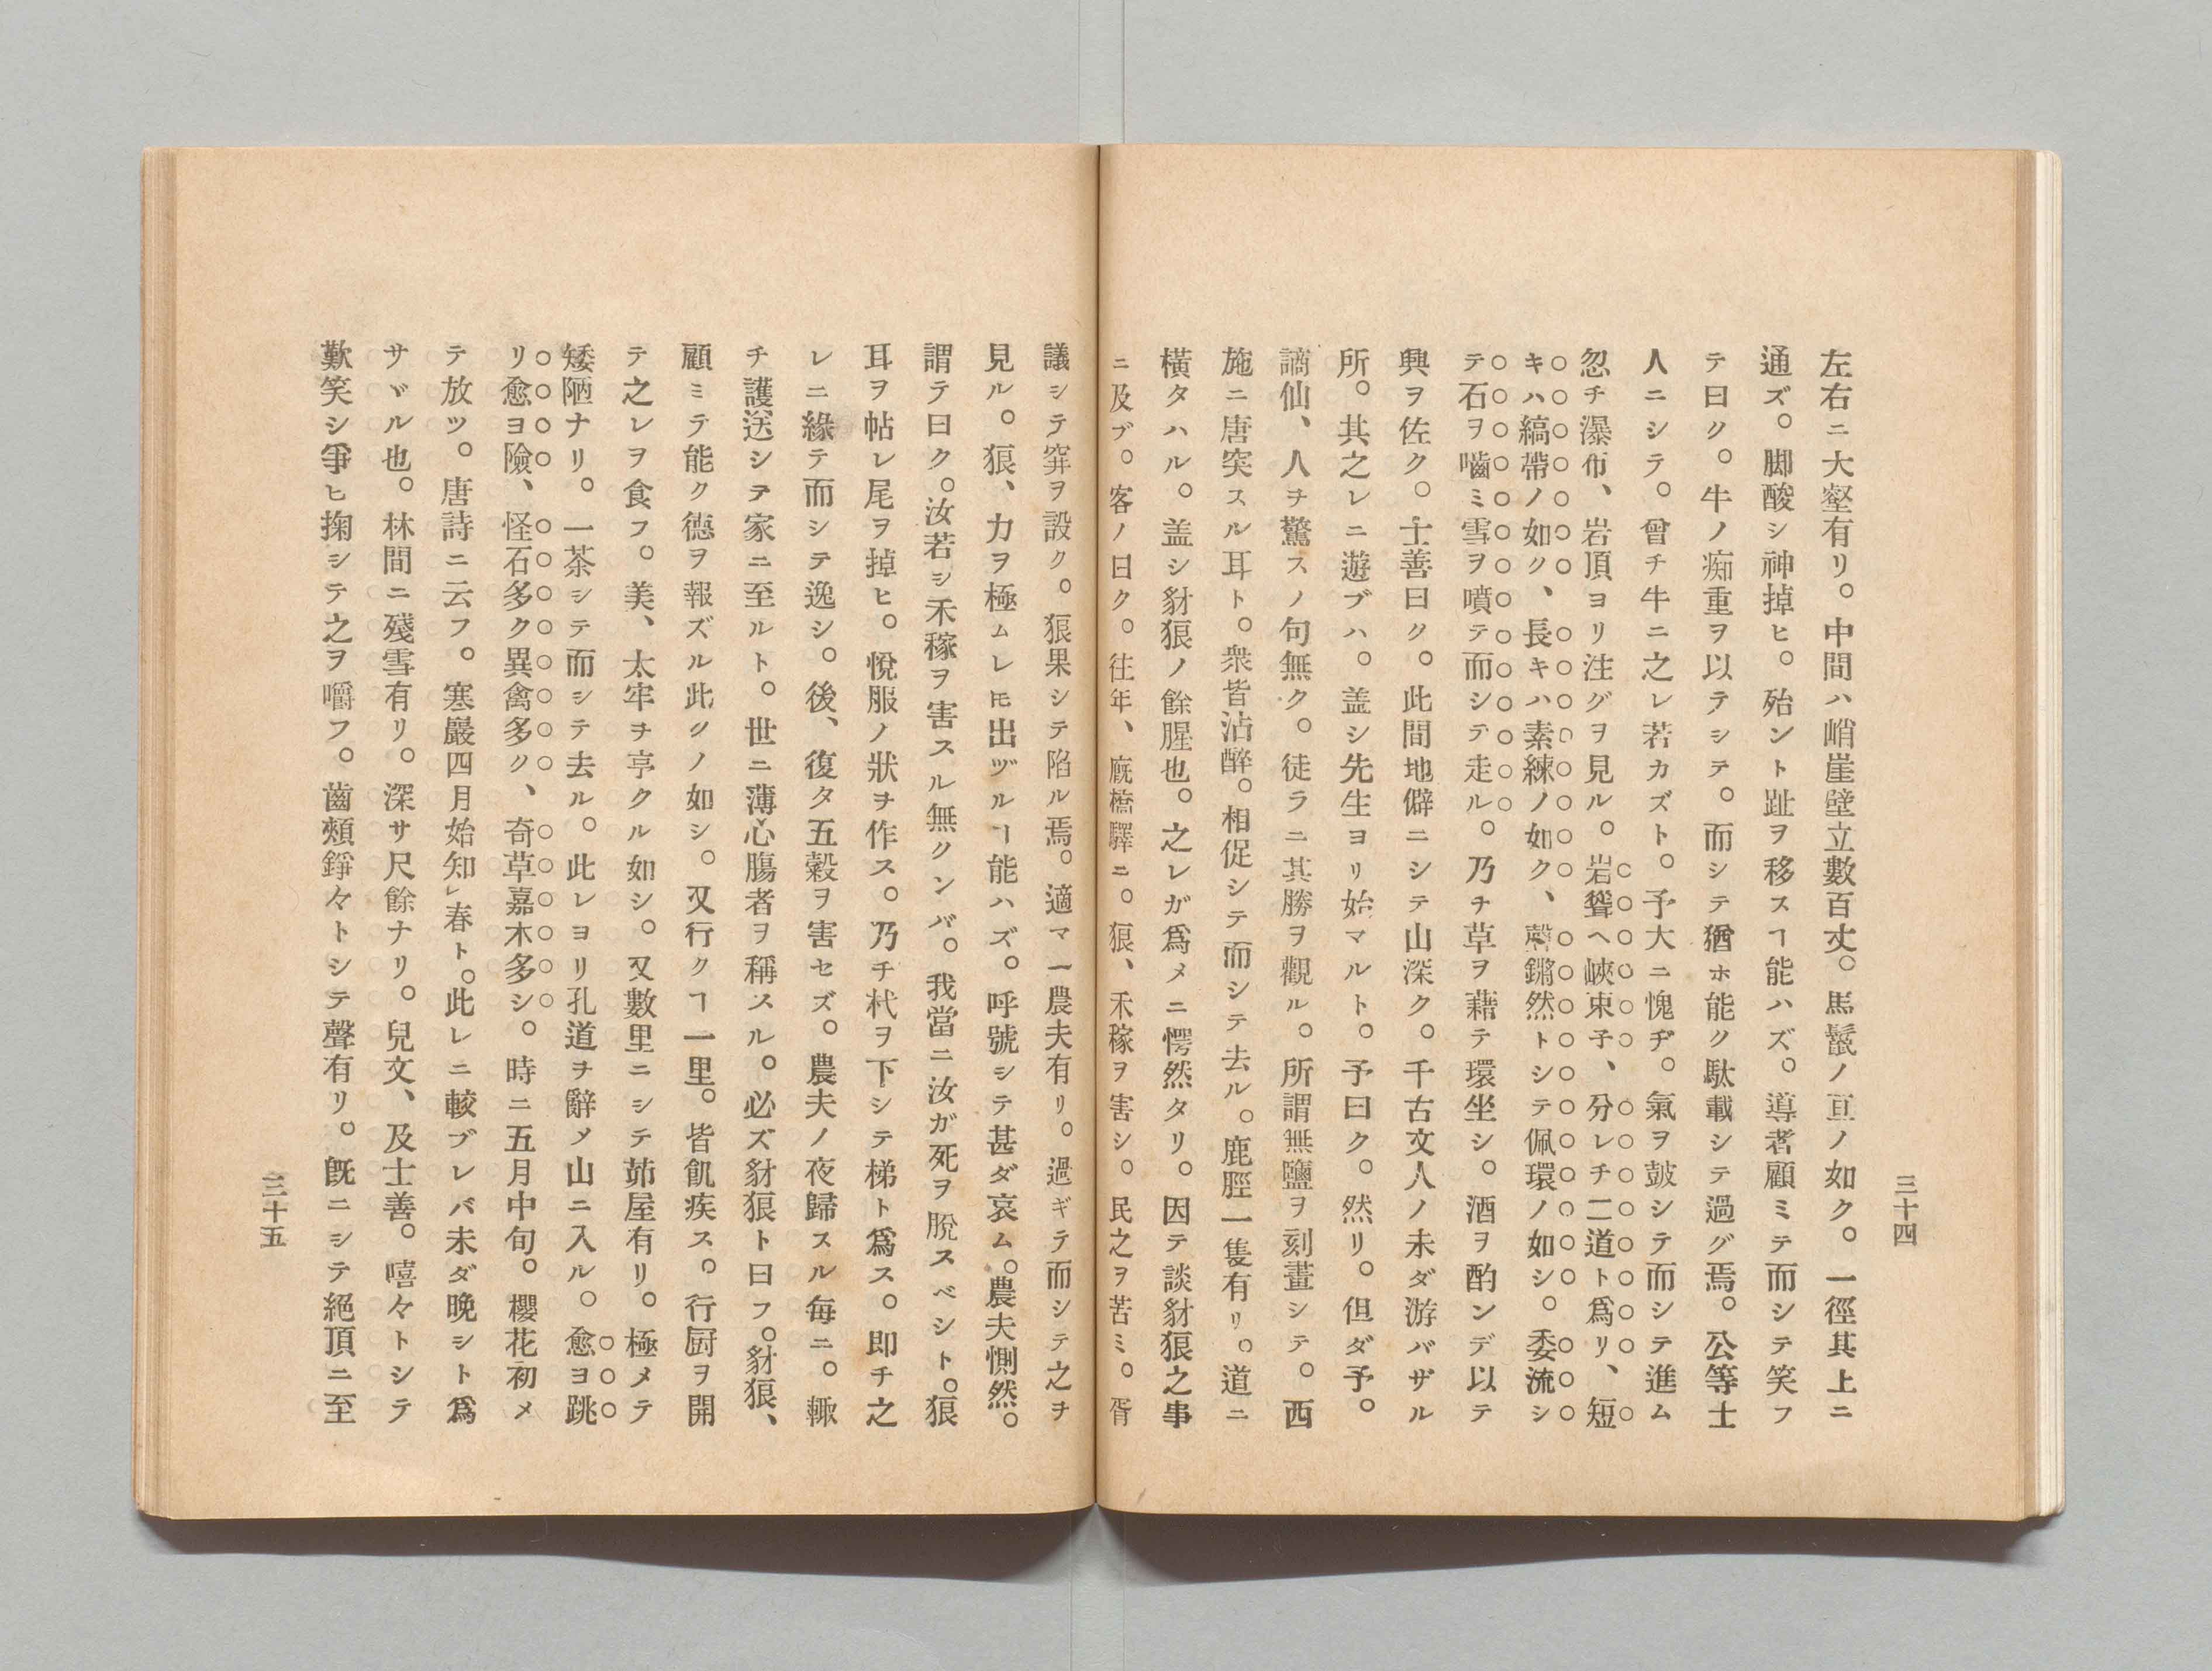 三十四
左右ニ大壑有リ。中間ハ峭崖壁立數百丈。馬鬣ノ亘ノ如ク。一徑其上ニ
通ズ。脚酸シ神掉ヒ。殆ント趾ヲ移スヿ能ハズ。導者顧ミテ而シテ笑フ
テ曰ク。牛ノ痴重ヲ以テシテ。而シテ猶ホ能ク駄載シテ過グ焉。公等士
人ニシテ。曾チ牛ニ之レ若カズト。予大ニ愧ヂ。氣ヲ皷シテ而シテ進ム
忽チ瀑布、岩頂ヨリ注グヲ見ル。岩聳ヘ峽束子、分レチ二道ト爲リ、短
キハ縞帶ノ如ク、長キハ素練ノ如ク、磬鏘然トシテ佩環ノ如シ。委流シ
テ石ヲ嚙ミ雪ヲ噴テ而シテ走ル。乃チ草ヲ藉テ環坐シ。酒ヲ酌ンデ以テ
興ヲ佐ク。士善曰ク。此間地僻ニシテ山深ク。千古文人ノ未ダ游バザル
所。其之レニ遊ブハ。盖シ先生ヨリ始マルト。予曰ク。然リ。但ダ予。
謫仙、人チ驚スノ句無ク。徒ラニ其勝ヲ觀ル。所謂無鹽ヲ刻畫シテ。西
施ニ唐突スル耳ト。衆皆沾醉。相促シテ而シテ去ル。鹿脛一隻有リ。道ニ
橫タハル。盖シ豺狼ノ餘腥也。之レガ爲メニ愕然タリ。因テ談豺狼之事
ニ及ブ。客ノ曰ク。往年、廐橋驛ニ。狼、禾稼ヲ害シ。民之ヲ苦ミ。胥
議シテ穽ヲ設ク。狼果シテ陷ル焉。適マ一農夫有リ。過ギテ而シテ之チ
見ル。狼、力ヲ極ムレ𪜈出ヅルヿ能ハズ。呼號シテ甚ダ哀ム。農夫惻然。
謂テ曰ク。汝若シ禾稼ヲ害スル無クンバ。我當ニ汝ガ死ヲ脫スベシト。狼
耳ヲ帖レ尾ヲ掉ヒ。悅服ノ狀チ作ス。乃チ杙ヲ下シテ梯ト爲ス。即チ之
レニ緣テ而シテ逸シ。後、復タ五穀ヲ害セズ。農夫ノ夜歸スル每ニ。輙
チ護送シテ家ニ至ルト。世ニ薄心膓者ヲ稱スル。必ズ豺狼ト曰フ。豺狼、
顧ミテ能ク德ヲ報ズル此クノ如シ。又行クヿ一里。皆飢疾ス。行厨ヲ開
テ之レヲ食フ。美、太牢チ亨クル如シ。又數里ニシテ茆屋有リ。極メテ
矮陋ナリ。一茶シテ而シテ去ル。此レヨリ孔道チ辭メ山ニ入ル。愈ヨ跳
リ愈ヨ險、怪石多ク異禽多ク、奇草嘉木多シ。時ニ五月中旬。櫻花初メ
テ放ツ。唐詩ニ云フ。寒巖四月始知レ春ト。此レニ較ブレバ未ダ晚シト爲
サヾル也。林間ニ殘雪有リ。深サ尺餘ナリ。兒文、及士善。嘻々トシテ
歡笑シ爭ヒ掬シテ之ヲ嚼フ。齒頰錚々トシテ聲有リ。旣ニシテ絕頂ニ至
三十五